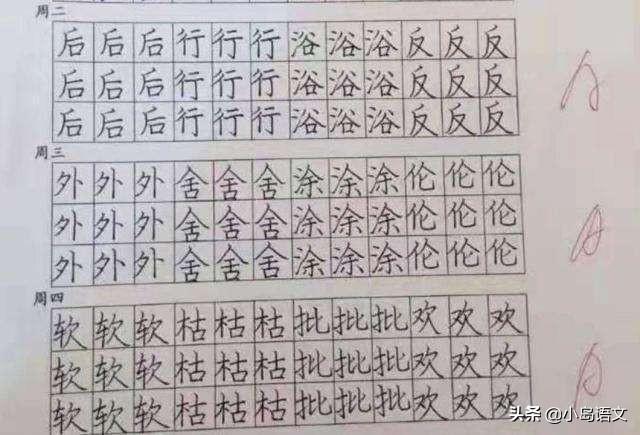 周二
后后后行行行浴浴浴反反反
后后后行行行浴浴浴反反反
后后后行行行浴浴浴反反反
A
周三
外外外舍舍舍涂涂涂伦伦伦
外外外舍舍舍涂涂涂伦伦伦
外外外舍舍舍涂涂涂伦伦伦
A
周四
软软软枯枯枯批批批欢欢欢
软软软枯枯枯批批批欢欢欢
软软软枯枯枯批批批欢欢欢
A
头条 @小岛语文